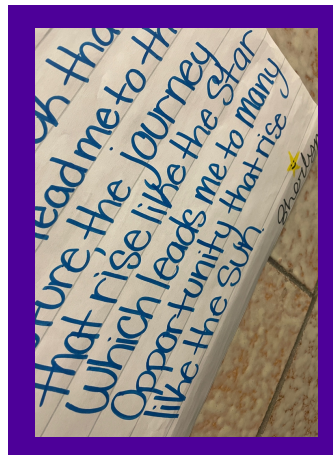 lead me to
the journey
that rise like the Star
Which leads me to many
Opportunity that rise
like the sun.